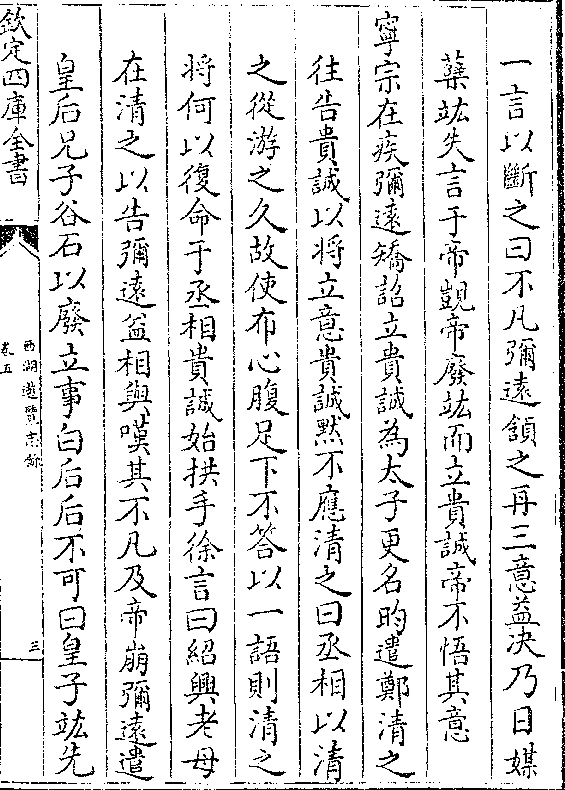 一言以斷之曰不凡彌遠頷之再三意益决乃日媒
蘖竑失言于帝覬帝廢竑而立貴誠帝不悟其意
寧宗在疾彌遠矯詔立貴誠為太子更名昀遣鄭清之
往告貴誠以将立意貴誠黙不應清之曰丞相以清
之從游之久故使布心腹足下不答以一語則清之
将何以復命于丞相貴誠始拱手徐言曰紹興老母
在清之以告彌遠益相與嘆其不凡及帝崩彌遠遣
皇后兄子谷石以廢立事白后后不可曰皇子竑先
欽定四庫全書
西湖遊覽志餘
卷五
三